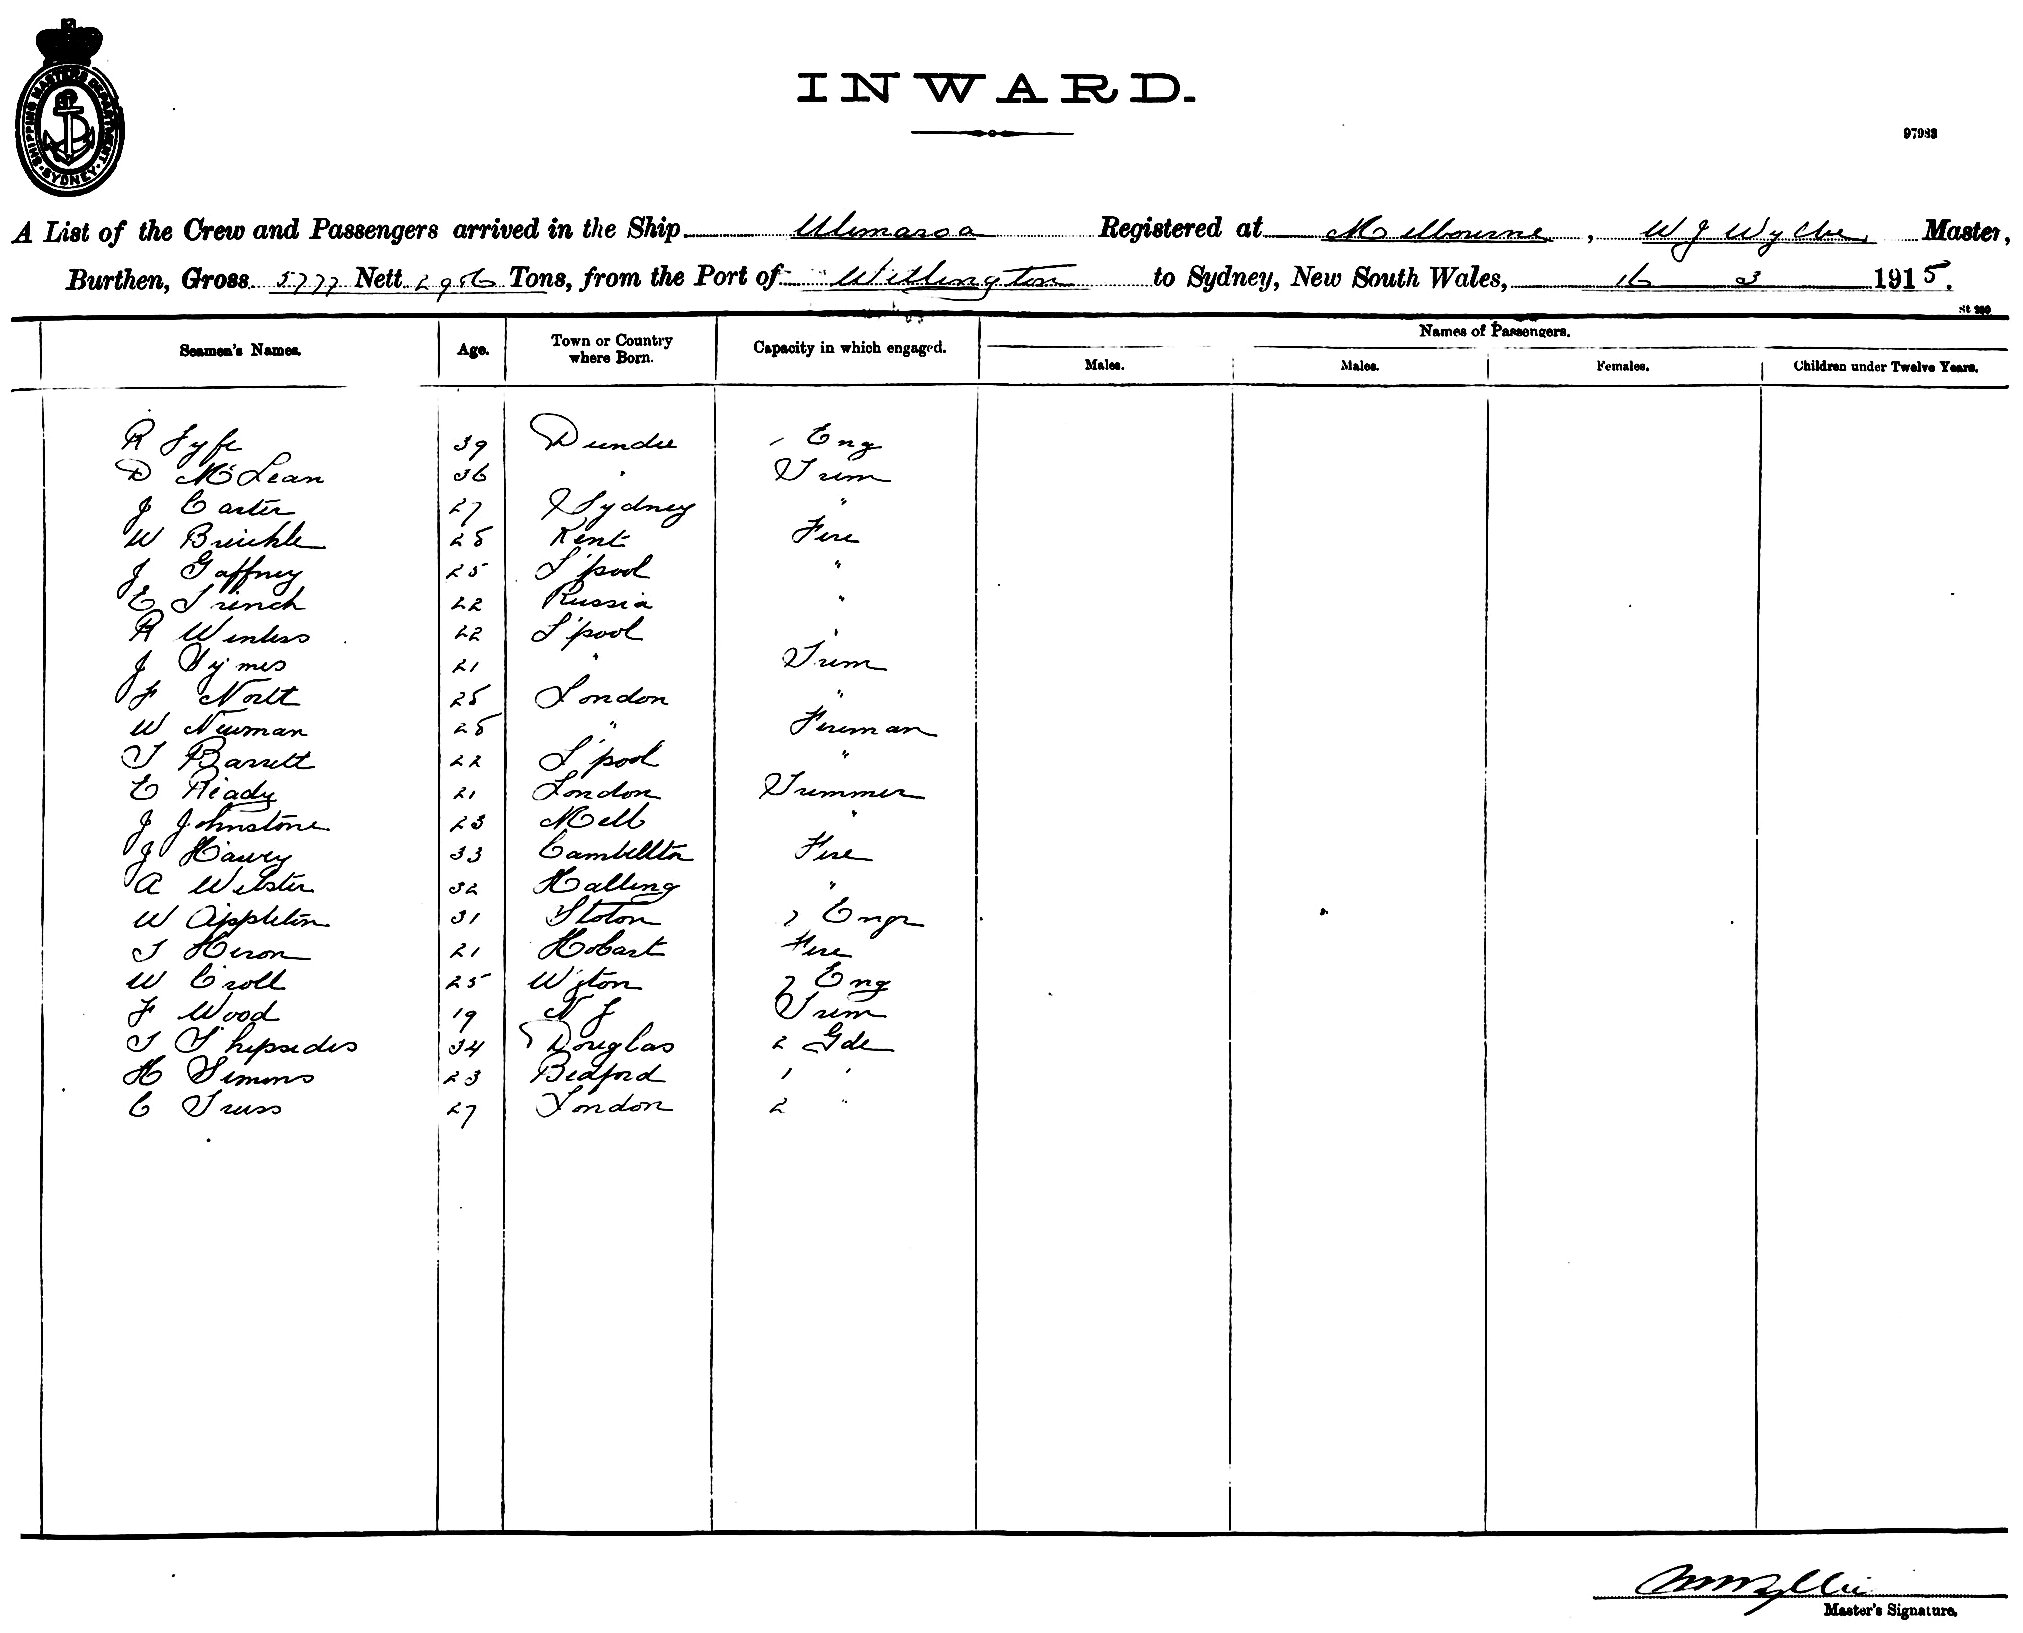 SHIPPING MASTERS DEPARTMENT SYDNEY
INWARD.
97983
A List of the Crew and Passengers arrived in the Ship Ulimaroa Registered at Melbourne, W J Wyllie Master,
Burthen, Gross 5777 Nett Tons, from the Port of Wellington to Sydney, New South Wales, 16 3 1915.
Seamen's Names. Age. Town or Country where Born. Capacity in which engaged. Names of Passengers.
Males. Males. Females. Children under Twelve Years.
R Fyfe 39 Dundee Eng
D McLean 36 " Trim
J Carter 27 Sydney "
W 28 Kent Fire
J Gaffney 25 L'pool "
E French 22 Russia "
R 22 L'pool "
J Symes 21 " Trim
F North 25 London "
W Newman 25 " Fireman
T Barrett 22 L'pool "
E Ready 21 London Trimmer
J Johnstone 23 Melb "
J Harvey 33 Cambellton Fire
A Webster 32 Halling "
W Appleton 31 7 Engr
T Heron 21 Hobart Fire
W Croll 25 W'gton 7 Eng
F Wood 19 N Z Trim
T 34 Douglas 2 Gde
H Simms 23 Bedford 1 "
C Truss 27 London 2 "
Master's Signature.